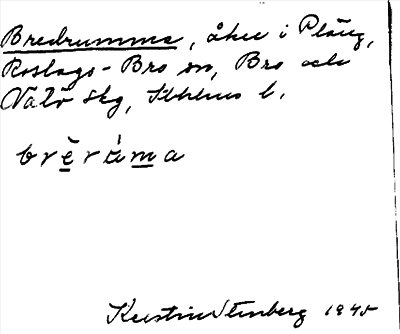 Bredrumma, åker i Plång,
Roslags-Bro sn, Bro och
Väto skg, Sthlms l.
brèrúma
Kerstin Stenberg 1945